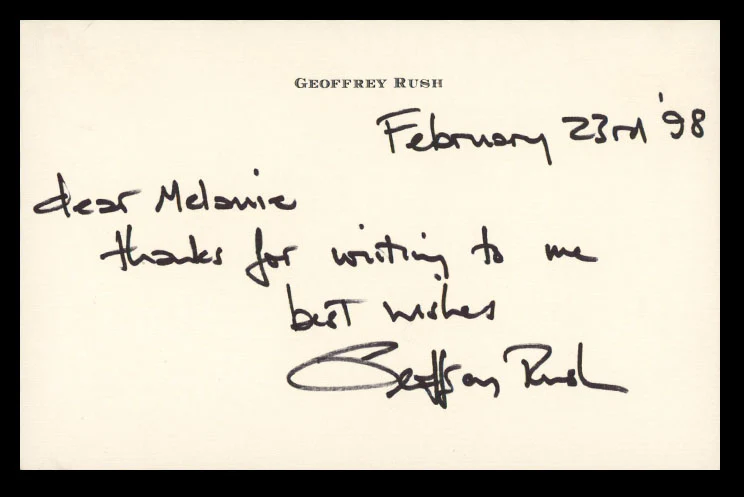 GEOFFREY RUSH
February 23rd '98
dear Melanie
thanks for writing to me
best wishes
Geoffrey Rush